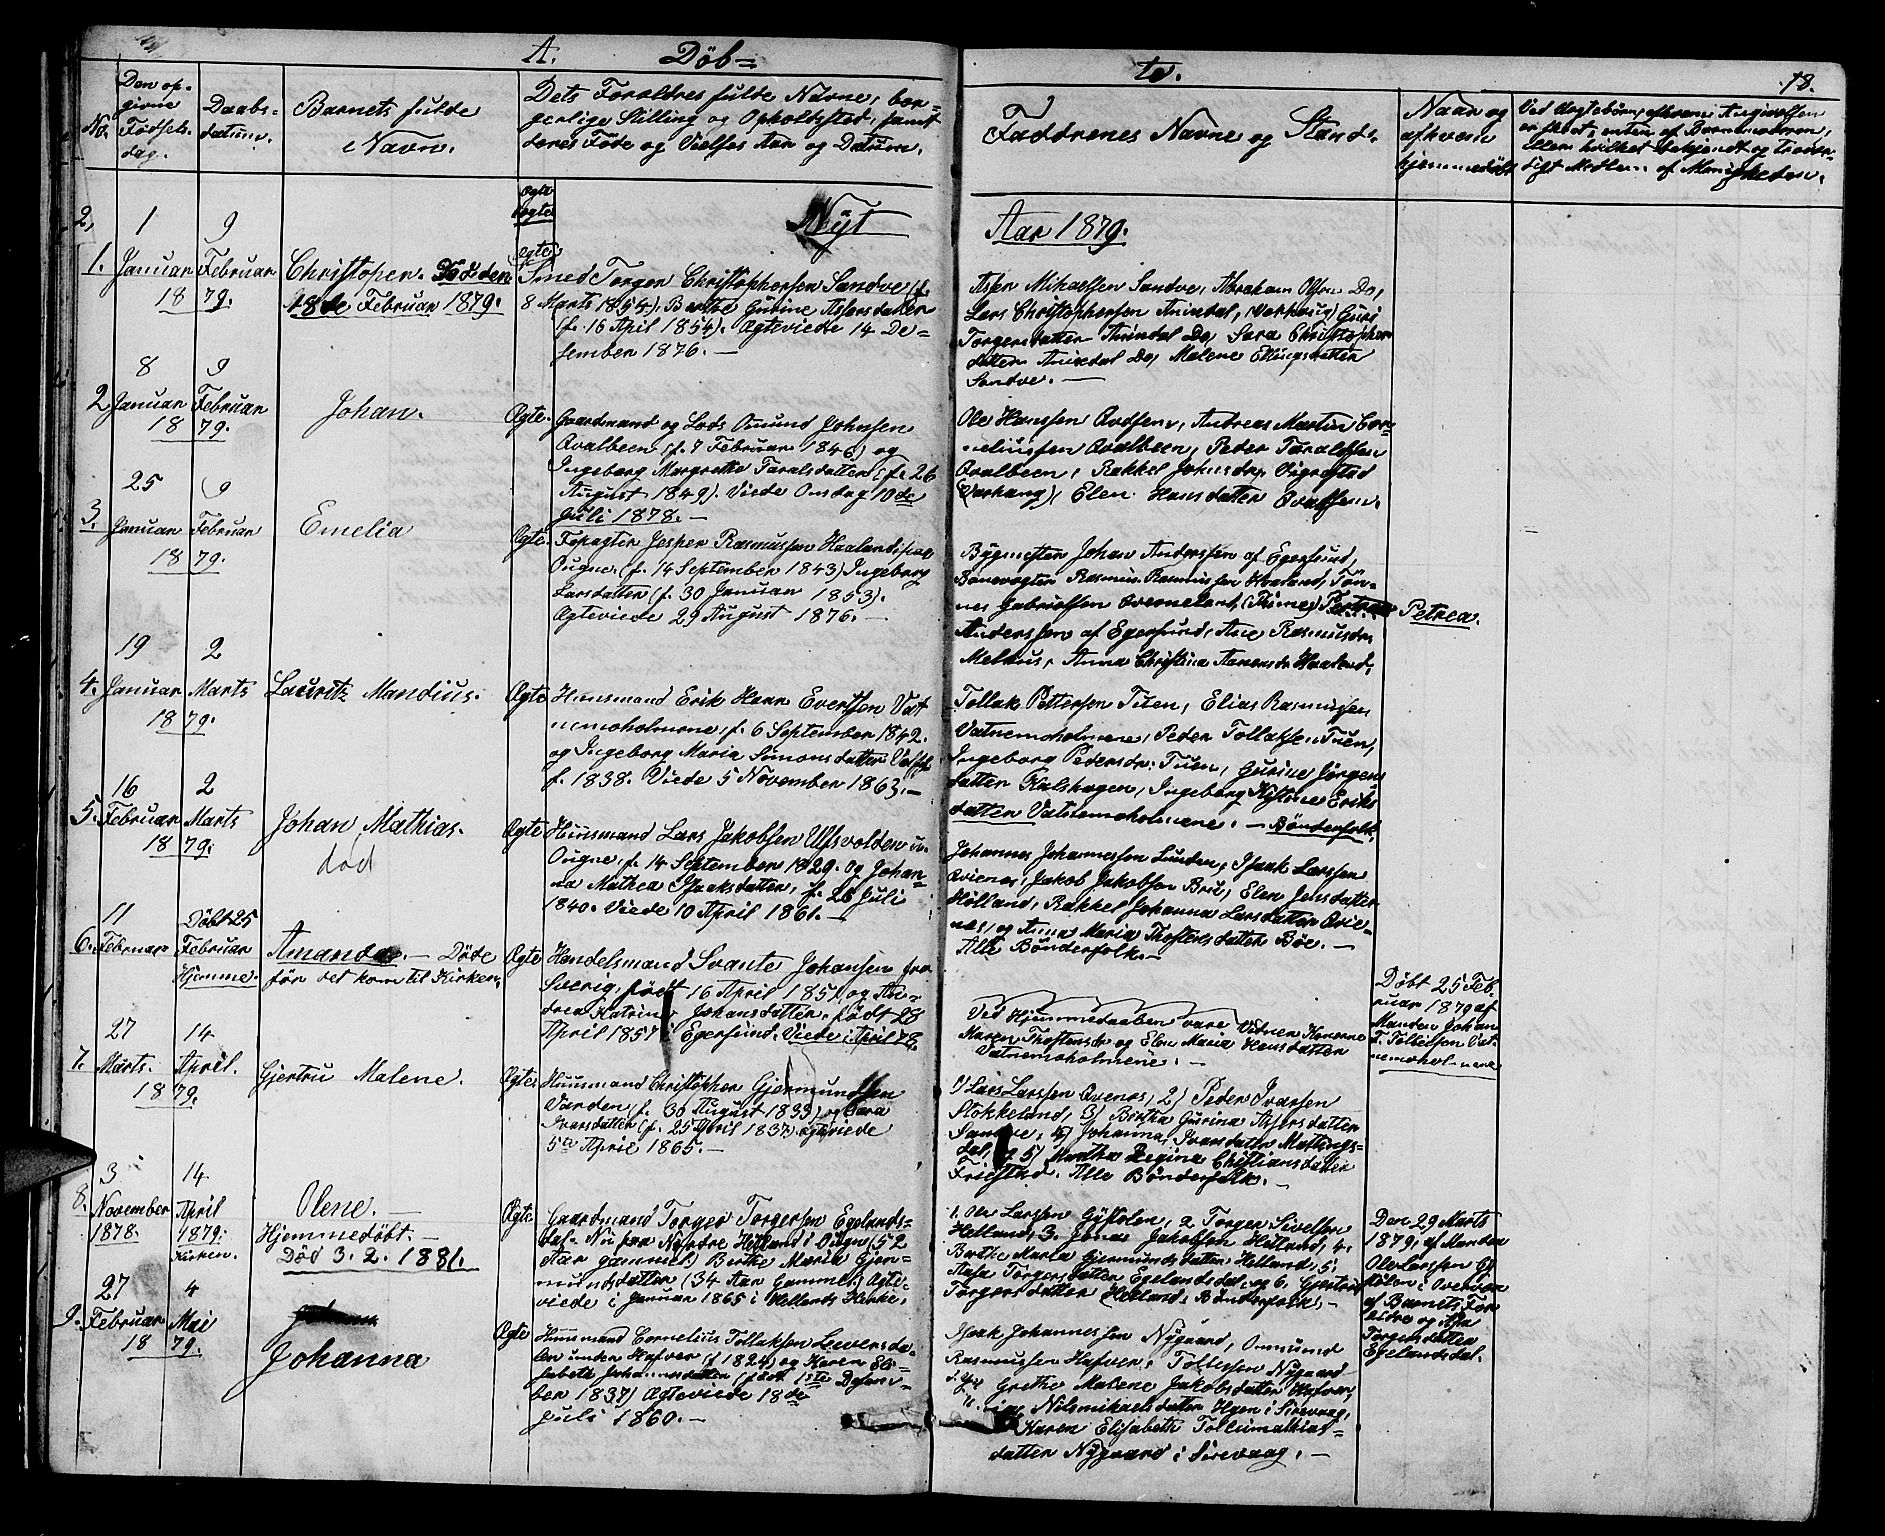 A. Döb=
te.
18.
No.
Den op-
givne
Fødsels-
dag.
Daabs-
datum.
Barnets fulde
Navn.
Dets Forældres fulde Navne, bor-
gerlige Stilling og Opholdsted, samt
deres Føde og Vielses Aar og Datum.
Faddrenes Navne og Stand.
Naar og
af hvem
hjemmedøbt
Ægte
uægte
Nyt
Aar 1879.
2,
1 9
1. Januar Februar
18 79.
Christopher. Død den
18de Februar 1879.
Ægte
Smed Torger Christophersen Sandve (f.
8 Marts 1854). Berthe Gurine Assersdatter
(f. 16 April 1854). Ægteviede 14 De-
sember 1876. —
Asser Mikaelsen Sandve, Abraham Olsen Do,
Lars Christophersen Aniedal, (Varhaug) Guri
Torgersdatter Aniedal Do, Sara Christopher
datter Aniedal Do, Malene Ellingsdatter
Sandve. —
8 9
2 Januar Februar
18 79.
Johan.
Ægte.
Gaardmand og Lods Omund Johnsen
Qvalbeen (f. 7 Februar 1846) og
Ingeborg Margrethe Taralsdatter (f. 26
August 1849). Viede Onsdag 10de
Juli 1878. —
Ole Hanssen Qvassem, Andreas Martin Cor-
neliussen Qvalbeen, Peder Taraldsen
Qvalbeen, Rakkel Johnsdr,
(Varhaug), Elen Hansdatter Qvassem.
25 9
3. Januar Februar
18 79.
Emelia
Ægte.
Fopagter Jesper Rasmussen Haaland paa
Ougne, (f. 14 September 1843) Ingeborg
Larsdatter (f. 30 Januar 1853).
Ægteviede 29 August 1876. —
Bygmester Johan Anderssen af Egersund,
Banevogter Rasmus Rasmussen Haaland, Tøn-
nes Gabrielsen Qverneland, (Thime)
Petrea.
Anderssen af Egersund, Ane Rasmusdr.
Melhus, Anna Christina Aanensdr Haaland.
19 2
4. Januar Marts
18 79.
Lauritz Mandius.
Ægte
Huusmand Erik Hann Evertsen Vat
nemoholmene, f. 6 September 1842.
og Ingeborg Maria Simonsdatter
f. 1838. Viede 5 November 1863. —
Tollak Pettersen Tuen, Elias Rasmussen
Vatnemoholmene, Peder Tollaksen Tuen,
Ingeborg Pedersdr. Tuen, Gurine Jørgens
datter Kalshagen, Ingeborg Kistine Eriks
datter Vatnemoholmene. — Bønderfolk.
16 2
5. Februar Marts
18 79.
Johan Mathias.
død
Ægte
Huusmand Lars Jakobsen Ulfsvolden i
Ougne, f. 14 September 1829. og Johan-
na Mathea Isaaksdatter, f. 26 Juli
1840. Viede 10 April 1861. —
Johannes Johannessen Lunden, Isaak Larssen
Qvienes, Jakob Jakobsen Brü, Elen Jensdatter
Hölland, Rakkel Johanna Larsdatter Qvie-
nes, og Anna Maria Thostensdatter Böe. —
Alle Bønderfolk. —
11 Döbt 25
6. Februar Februar
Hjemme.
Amanda. — Døde
før det kom til Kirken.
Ægte
Handelsmand Svante Johansen fra
Sverig, født 16 April 1851 og An-
drea Katrine Johansdatter, født 28
April 1857 i Egersund. Viede i April 78.
Ved Hjemmedaaben vare Vidner Konerne
Karen Thostensdr og Elen Maria Hansdatter
Vatnemoholmene. —
Døbt 25 Feb-
ruar 1879 af
Manden Johan
F. Tollefsen Vat-
nemohol-mene
27 14
7. Marts. April.
18 79.
Gjertru Malene.
Ægte
Huusmand Christopher Gjermundsen
Varden, (f. 30 August 1833) og Sara
Ivarsdatter (f. 25 April 1837) ægteviede
5te April 1865. —
1) Lars Larssen Qvenes, 2) Peder Ivarsen
Stokkeland, 3) Birtha Gurina Assersdatter
Sandve, 4) Johanna Ivarsdatter Mattings-
dal, og 5) Martha Regina Christiansdatter
Friestad. Alle Bønderfolk. —
3 14
8. November April
1878. 1879.
Kirken.
Olene. —
Hjemmedøbt. —
Död 3. 2. 1881.
Ægte
Gaardmand Torger Torgersen Egelands-
dal. Nu fra Nordre Hetland i Ougne (52
Aar gammel) Birthe Maria Gjer-
mundsdatter (34 Aar gammel) Ægte-
viede i Januar 1865 i Hellands Kirke.
1. Ole Larssen Gystølen, 2 Torger Sivertsen
Hetland, 3. Jonas Jakobsen Hetland, 4.
Berthe Maria Gjermundsdatter Hetland, 5.
Aasa Torgersdatter Egelandsdal og 6. Gjertrud
Torgersdatter Hetland. Bønderfolk. —
Den 29 Marts
1879, af Manden
Ole Larssen Gy
stölen i Overvær
af Barnets For
ældre og Asa
Torgersdatter
Egelandsdal.
27 4
9. Februar Mai
18 79.
Johanna
Ægte
Huusmand Cornelius Tollaksen Siversda-
len under Hafver (f 1824) og Karen Eli-
sabeth Johannesdatter (født 1ste Desem-
ber 1837) Ægteviede 18de
Juli 1860. —
Isaak Johannessen Nygaard, Ommund
Rasmussen Hafver, Tollefsen Nygaard
Grethe Malene Jakobsdatter Hafver,
Nilsmikaelsdatter Hagen i Sirevaag,
Karen Elisabeth Tollimathias-
datter Nygaard i Sirevaag. —